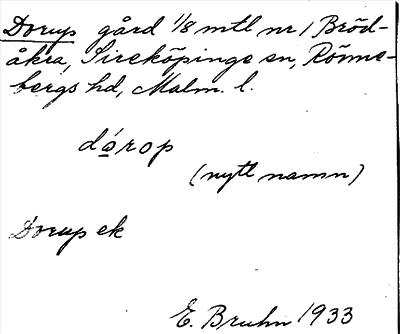 Dorup gård 1/8 mtl nr 1 Bröd-
åkra, Sireköpinge sn, Rönne-
bergs hd, Malm. l.
dórop
(nytt namn)
Dorup ek
E. Bruhn 1933